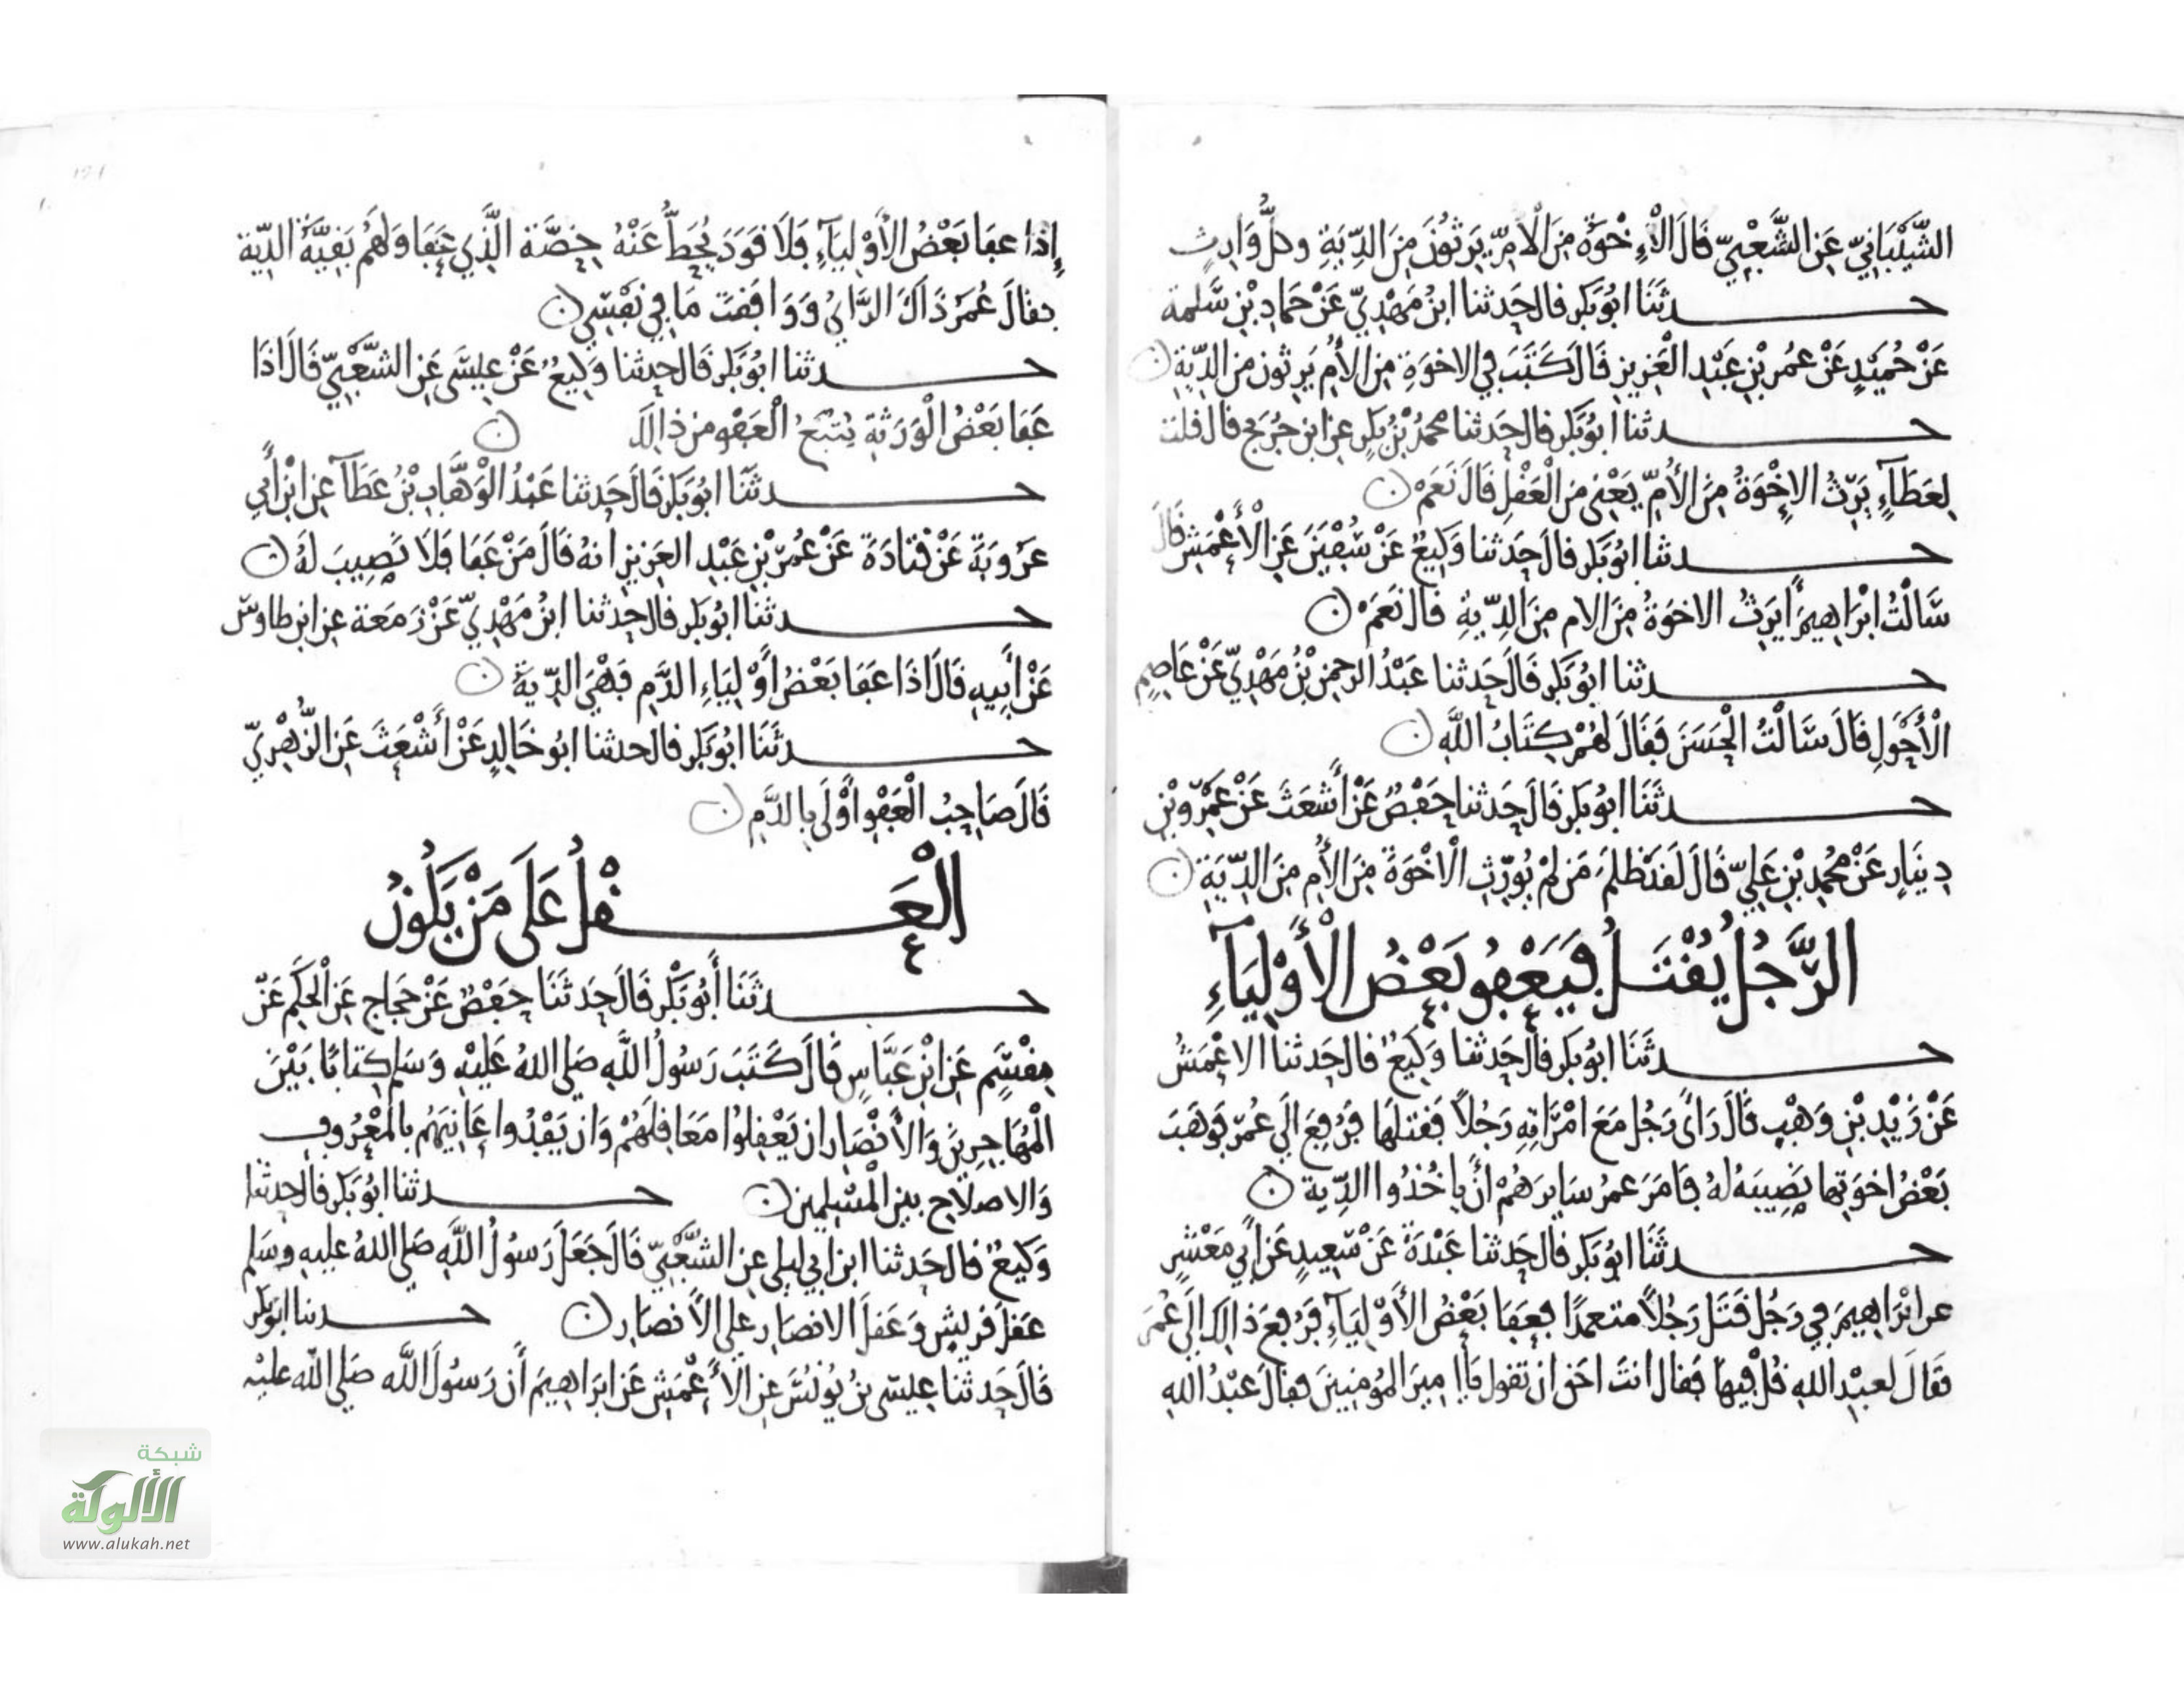 الشَّيْبَانِيّ عَنِ الشَّعْبِيّ قَالَ الْاِخْوَةُ مِنَ الْاُمِّ يَرِثُونَ مِنَ الدِّيَةِ وكلُّ وَارِثٍ
حدثَنَا ابُو بَكر قال حَدثنا ابنُ مَهْدِيّ عَنْ حَمادِ بْنِ سَلمة
عَنْ حُمَيْدٍ عَنْ عُمر بْنِ عَبْدِ الْعَزِيزِ قَالَ كَتَبَ فِي الاخوَةِ مِنَ الأُم يَرِثونَ من الدِّيَةِ
حدثنا ابُو بَكر قال حَدثنا محمدُ بْنُ بَكرٍ عن ابن جُرَيج قال قلت
لِعَطَآءٍ يَرِثُ الاِخْوَةُ مِنَ الأُمِّ يَعْنِي مِنَ الْعَقْلِ قَالَ نَعَمْ
حدثنا ابُو بَكر قال حَدثنا وَكِيعٌ عَنْ سُفْيَنَ عَنِ الْأَعْمَشِ قَالَ
سَالْتُ ابْرَاهِيمَ أَيَرِثُ الاخوَةُ مِنَ الام مِنَ الدِّيَةِ قال نَعَمْ
حدثنا ابُو بَكر قَالَ حَدثنا عَبْدُ الرحمن بْنُ مَهْدِيّ عَنْ عَاصِمٍ
الْأَحْوَلِ قَالَ سَالْتُ الْحَسَنَ فَقَالَ لَهُمْ كِتَابُ اللَّهِ
حدثَنَا ابُو بَكر قَالَ حَدثنا حَفْصٌ عَنْ أَشْعَثَ عَنْ عَمْرِو بْنِ
دِينَارٍ عَنْ مُحمدِ بْنِ عَلِيّ قَالَ لَقَدْ ظَلَمَ مَن لَمْ يُوَرِّثِ الْاخْوَةَ مِنَ الأُم مِنَ الدِّيَةِ
الرَّجُلُ يُقْتَلُ فَيَعْفُو بَعْضُ الْأَوْلِيَآءِ
حدثَنَا ابُو بَكر قال حَدثنا وَكِيعٌ قال حَدثنا الاعْمَشُ
عَنْ زَيْدِ بْنِ وَهْبٍ قَالَ رَأَى رَجُل مَعَ امْرَاتِهِ رَجُلاً فَقتلهَا فَرُفِعَ الَي عُمَر فَوَهَبَ
بَعْضُ اخوَتِها نَصِيبَهُ لهُ فَامَرَ عمرُ سَايرَهُمْ أَنْ يَاخُذُوا الدِّيَة
حدثَنَا ابُو بَكر قال حَدثنا عَبْدَةُ عَنْ سَعِيدٍ عَن أَبِي مَعْشَرٍ
عن ابْرَاهِيمَ فِي رَجُل قَتَلَ رَجُلاً متعمدًا فَعَفَا بَعْضُ الأَوْلِيَآءِ فَرُفِعَ ذالك الَى عُمَرَ
فَقَالَ لعبْدِ اللهِ قُلْ فِيهَا فَقال انتَ احَق ان تقول يَا امِيرَ المُومِنِينَ فقالَ عَبْدُ اللهِ
إِذَا عفَا بَعْضُ الأَوْلِيَآءِ فَلَا قَوَدَ يُحَطُّ عَنْهُ حِصَّة الَّذِي عَفَا وَلَهُمْ بَقِيَّةُ الدِّيَة
فقالَ عُمَرُ ذَاكَ الرَّايُ وَوَافَقتَ مَا فِي نَفْسِي
حدثنا ابُو بَكر قَال حدثنا وَكِيعٌ عَنْ عِيسَى عَنِ الشَّعْبِيِّ قَالَ اذَا
عَفَا بَعْضُ الْوَرَثَةِ يُتْبَعُ الْعَفْو من ذالك
حدثَنَا ابُو بَكر قَالَ حَدثنا عَبْدُ الْوَهَّابِ بْنُ عَطَآ عن ابْنِ أَبِي
عَرُوبَةَ عَنْ قتَادَةَ عَنْ عُمَرَ بْنِ عَبْدِ العَزِيز انهُ قَالَ مَنْ عَفَا فَلَا نَصِيبَ لهُ
حدثَنا ابُو بَكر قال حدثنا ابنُ مَهْدِيّ عَنْ زَمَعَة عن ابن طاوس
عَنْ أَبِيهِ قَالَ اذَا عَفَا بَعْضُ أَوْلِيَاءِ الدَّمِ فَهْيَ الدِّيَةُ
حدثَنَا ابُو بَكر قال حدثنا ابُو خَالِدٍ عَنْ أَشْعَثَ عَنِ الزُّهْرِيّ
قَالَ صَاحِبُ الْعَفْوِ أَوْلَى بِالدَّمِ
الْعَقْلُ عَلَى مَنْ يَكُونُ
حدثَنَا أَبُو بَكْر قَالَ حَدثَنَا حَفْصٌ عَنْ حَجَّاج عَنِ الْحَكَمِ عَنْ
مِقْسَمٍ عَنِ ابْنِ عَبَّاسٍ قَالَ كَتَبَ رَسُولُ اللَّهِ صَلى اللهُ عَلَيْهِ وَسَلم كِتابًا بَيْنَ
الْمُهَاجِرِينَ وَالأَنْصَارِ ان يَعْقِلُوا مَعَاقِلَهُمْ وَان يَفْدُوا عَانِيَهُم بالمَعْرُوفِ
وَالاصلَاحِ بين الْمُسْلِمِينَ حدثنا ابُو بَكر قال حدثنا
وَكِيعٌ قال حَدثنا ابن ابي ليلى عن الشَّعْبِيّ قَالَ جَعَلَ رَسُولُ اللَّهِ صَلى اللهُ عليه وسَلم
عَقلَ قريْشٍ وَعَقلَ الانصَارِ على الأَنصَارِ حدثنا ابو بَكر
قَال حَدثنا عِيسَى بنُ يُونُسَ عَنِ الأَعْمَشِ عَن ابرَاهِيمَ أَن رَسُولَ اللَّه صَلى اللَّه علَيْهِ
شبكة
الألوكة
www.alukah.net